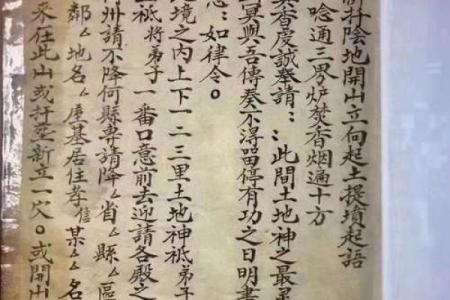 新扦陰地開山立向起土提墳起語
唸通三界炉焚香烟遍十方
真香虔誠奉請：此間土地神之最
冥與吾傳奏不淂留停有功之日明書
如律令。
境之内上下一二三里土地神祇弟子
祇將弟子一番口意前去迎請各殿之
州請不降何縣專請降厶省厶縣厶區
鄰厶地名厶基居住孝信某厶厶名
來在此山或扦塟新立一穴。或開山